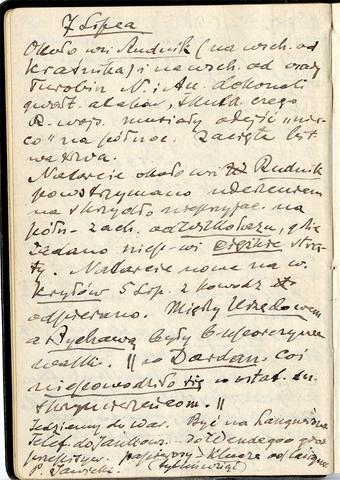 7 Lipca
Około wsi Rudnik (na wsch. od
Kraśnika) i na wsch. od osady
Turobin N. i Au. dokonali
gwałt. ataków, skutk. czego
R. wojo. musiały odejść „nie-
co” na północ. Zacięta bit
wa trwa.
Natarcie około wsi Rudnik
powstrzymano uderzeniem
na skrzydło nieprzyjac. na
półn-zach. od Wilkołazu, gdzie
zadano niep-wi ciężkie stra-
ty. Natarcie nowe na w.
Kryłów 5 Lip. z powodz.
odpierano. Między Urzędowem
a Bychawą były b. uporczywe
walki. || w Dardan. coś
niepowodziło się w ostat.
skrzy || 
Jedziemy do War. Być na
telef. do Jankows. - do Wendego
papierosy - klucze od
P. Janicki.